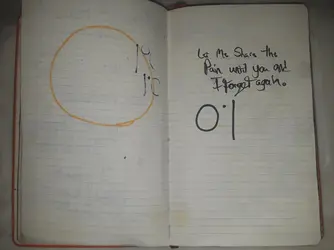 Let Me Share the
Pain until you and
I forget again.
0.1